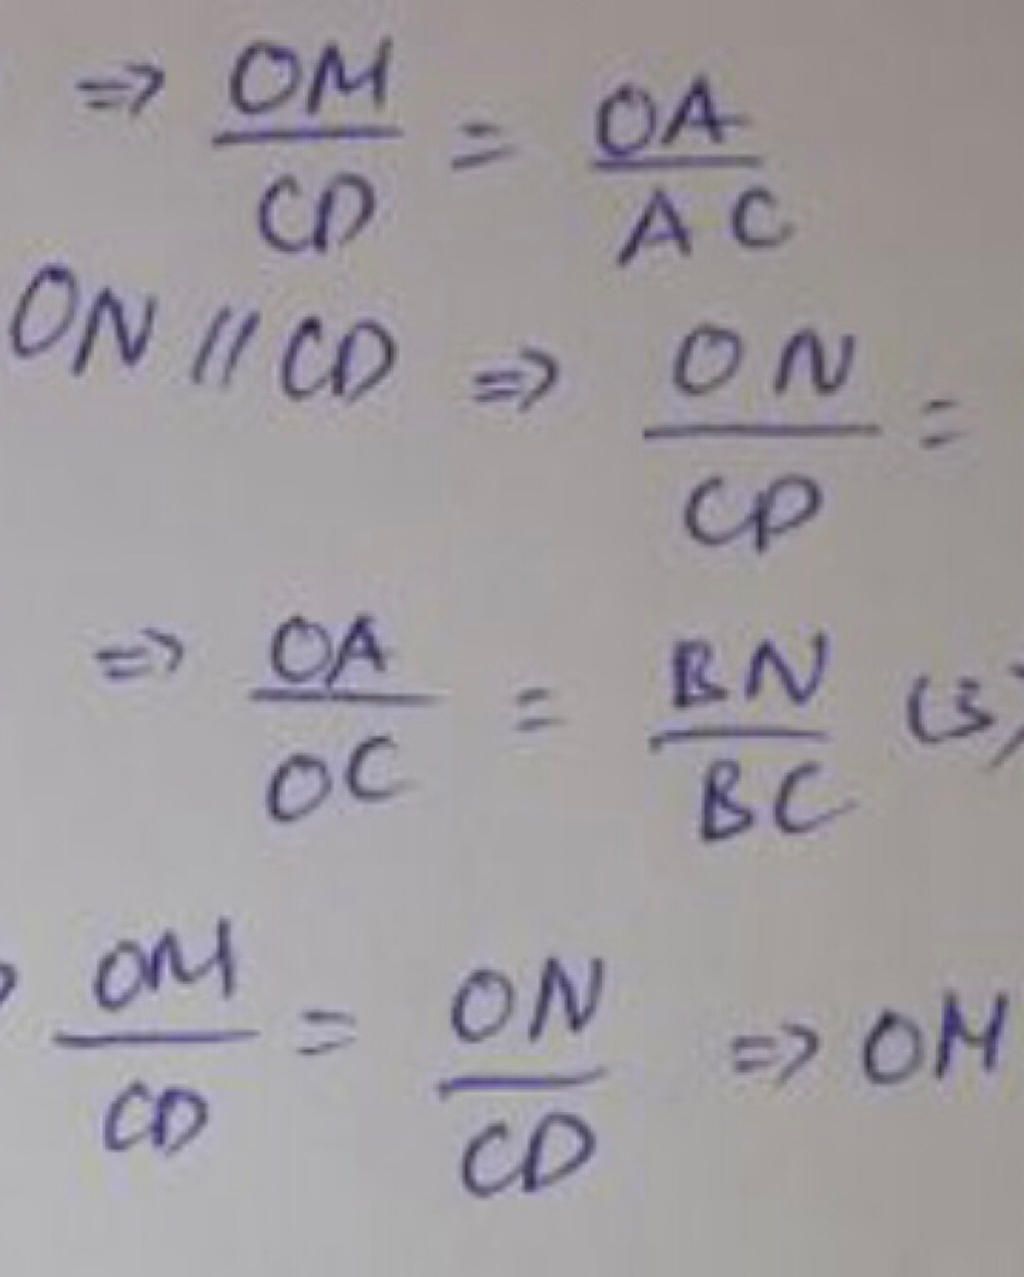 ⇒ OM/CD = OA/AC
ON // CD ⇒ ON/CD =
⇒ OA/OC = BN/BC (3)
OM/CD = ON/CD ⇒ OM